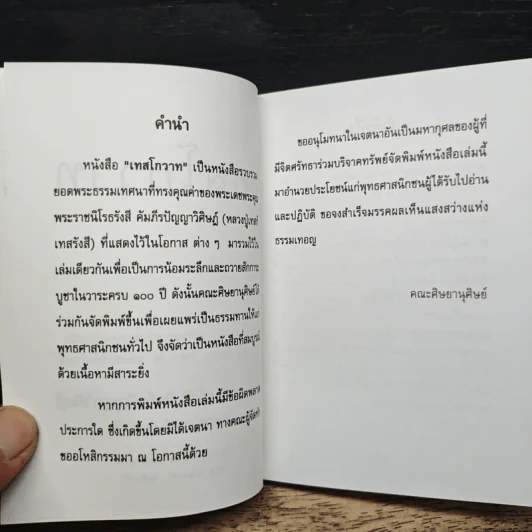 คำนำ
หนังสือ "เทสโกวาท" เป็นหนังสือรวบรวม
ยอดพระธรรมเทศนาที่ทรงคุณค่าของพระเดชพระคุณ
พระราชนิโรธรังสี คัมภีรปัญญาวิศิษฏ์ (หลวงปู่เทสก์
เทสรังสี) ที่แสดงไว้ในโอกาส ต่าง ๆ มารวมไว้ใน
เล่มเดียวกันเพื่อเป็นการน้อมระลึกและถวายสักการะ
บูชาในวาระครบ ๑๐๐ ปี ดังนั้นคณะศิษยานุศิษย์ได้
ร่วมกันจัดพิมพ์ขึ้นเพื่อเผยแพร่เป็นธรรมทานให้แก่
พุทธศาสนิกชนทั่วไป จึงจัดว่าเป็นหนังสือที่สมบูรณ์
ด้วยเนื้อหามีสาระยิ่ง
หากการพิมพ์หนังสือเล่มนี้มีข้อผิดพลาด
ประการใด ซึ่งเกิดขึ้นโดยมิได้เจตนา ทางคณะผู้จัดทำ
ขออโหสิกรรมมา ณ โอกาสนี้ด้วย
ขออนุโมทนาในเจตนาอันเป็นมหากุศลของผู้ที่
มีจิตศรัทธาร่วมบริจาคทรัพย์จัดพิมพ์หนังสือเล่มนี้
มาอำนวยประโยชน์แก่พุทธศาสนิกชนผู้ได้รับไปอ่าน
และปฏิบัติ ขอจงสำเร็จมรรคผลเห็นแสงสว่างแห่ง
ธรรมเทอญ
คณะศิษยานุศิษย์